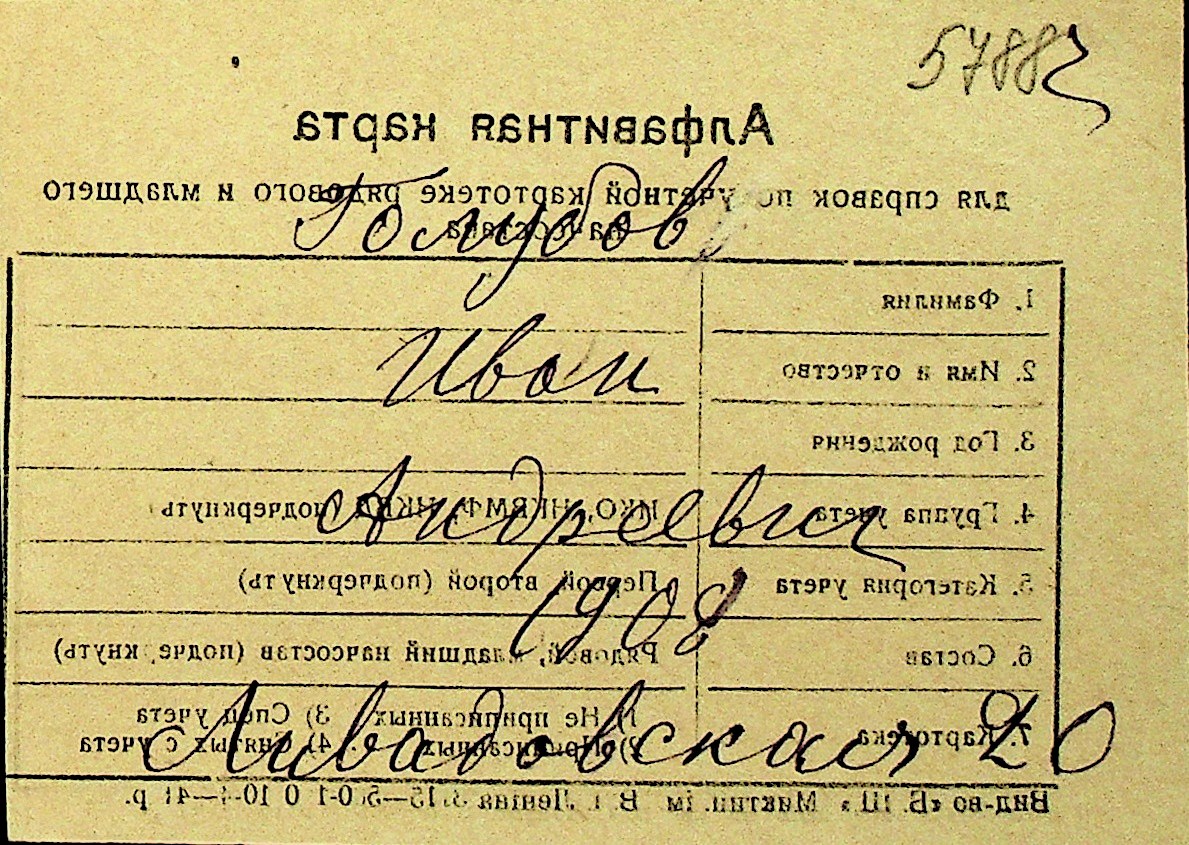 57882
Алфавитная карта
для справок по учетной картотеке рядового и младшего
начсостава
Голубов
1. Фамилия
Иван
2. Имя и отчество
3. Год рождения
Андреевич
4. Группа учета НКО, НКВМФ, НКВД (подчеркнуть)
5. Категория учета Первой, второй (подчеркнуть)
1908
6. Состав Рядовой, младший начсостав (подчеркнуть)
7. Картотека 1) Не приписанных 3) Спец учета
2) Приписанных 4) Снятых с учета
Ливадовская 20
Вид-во «Б. Ш.»